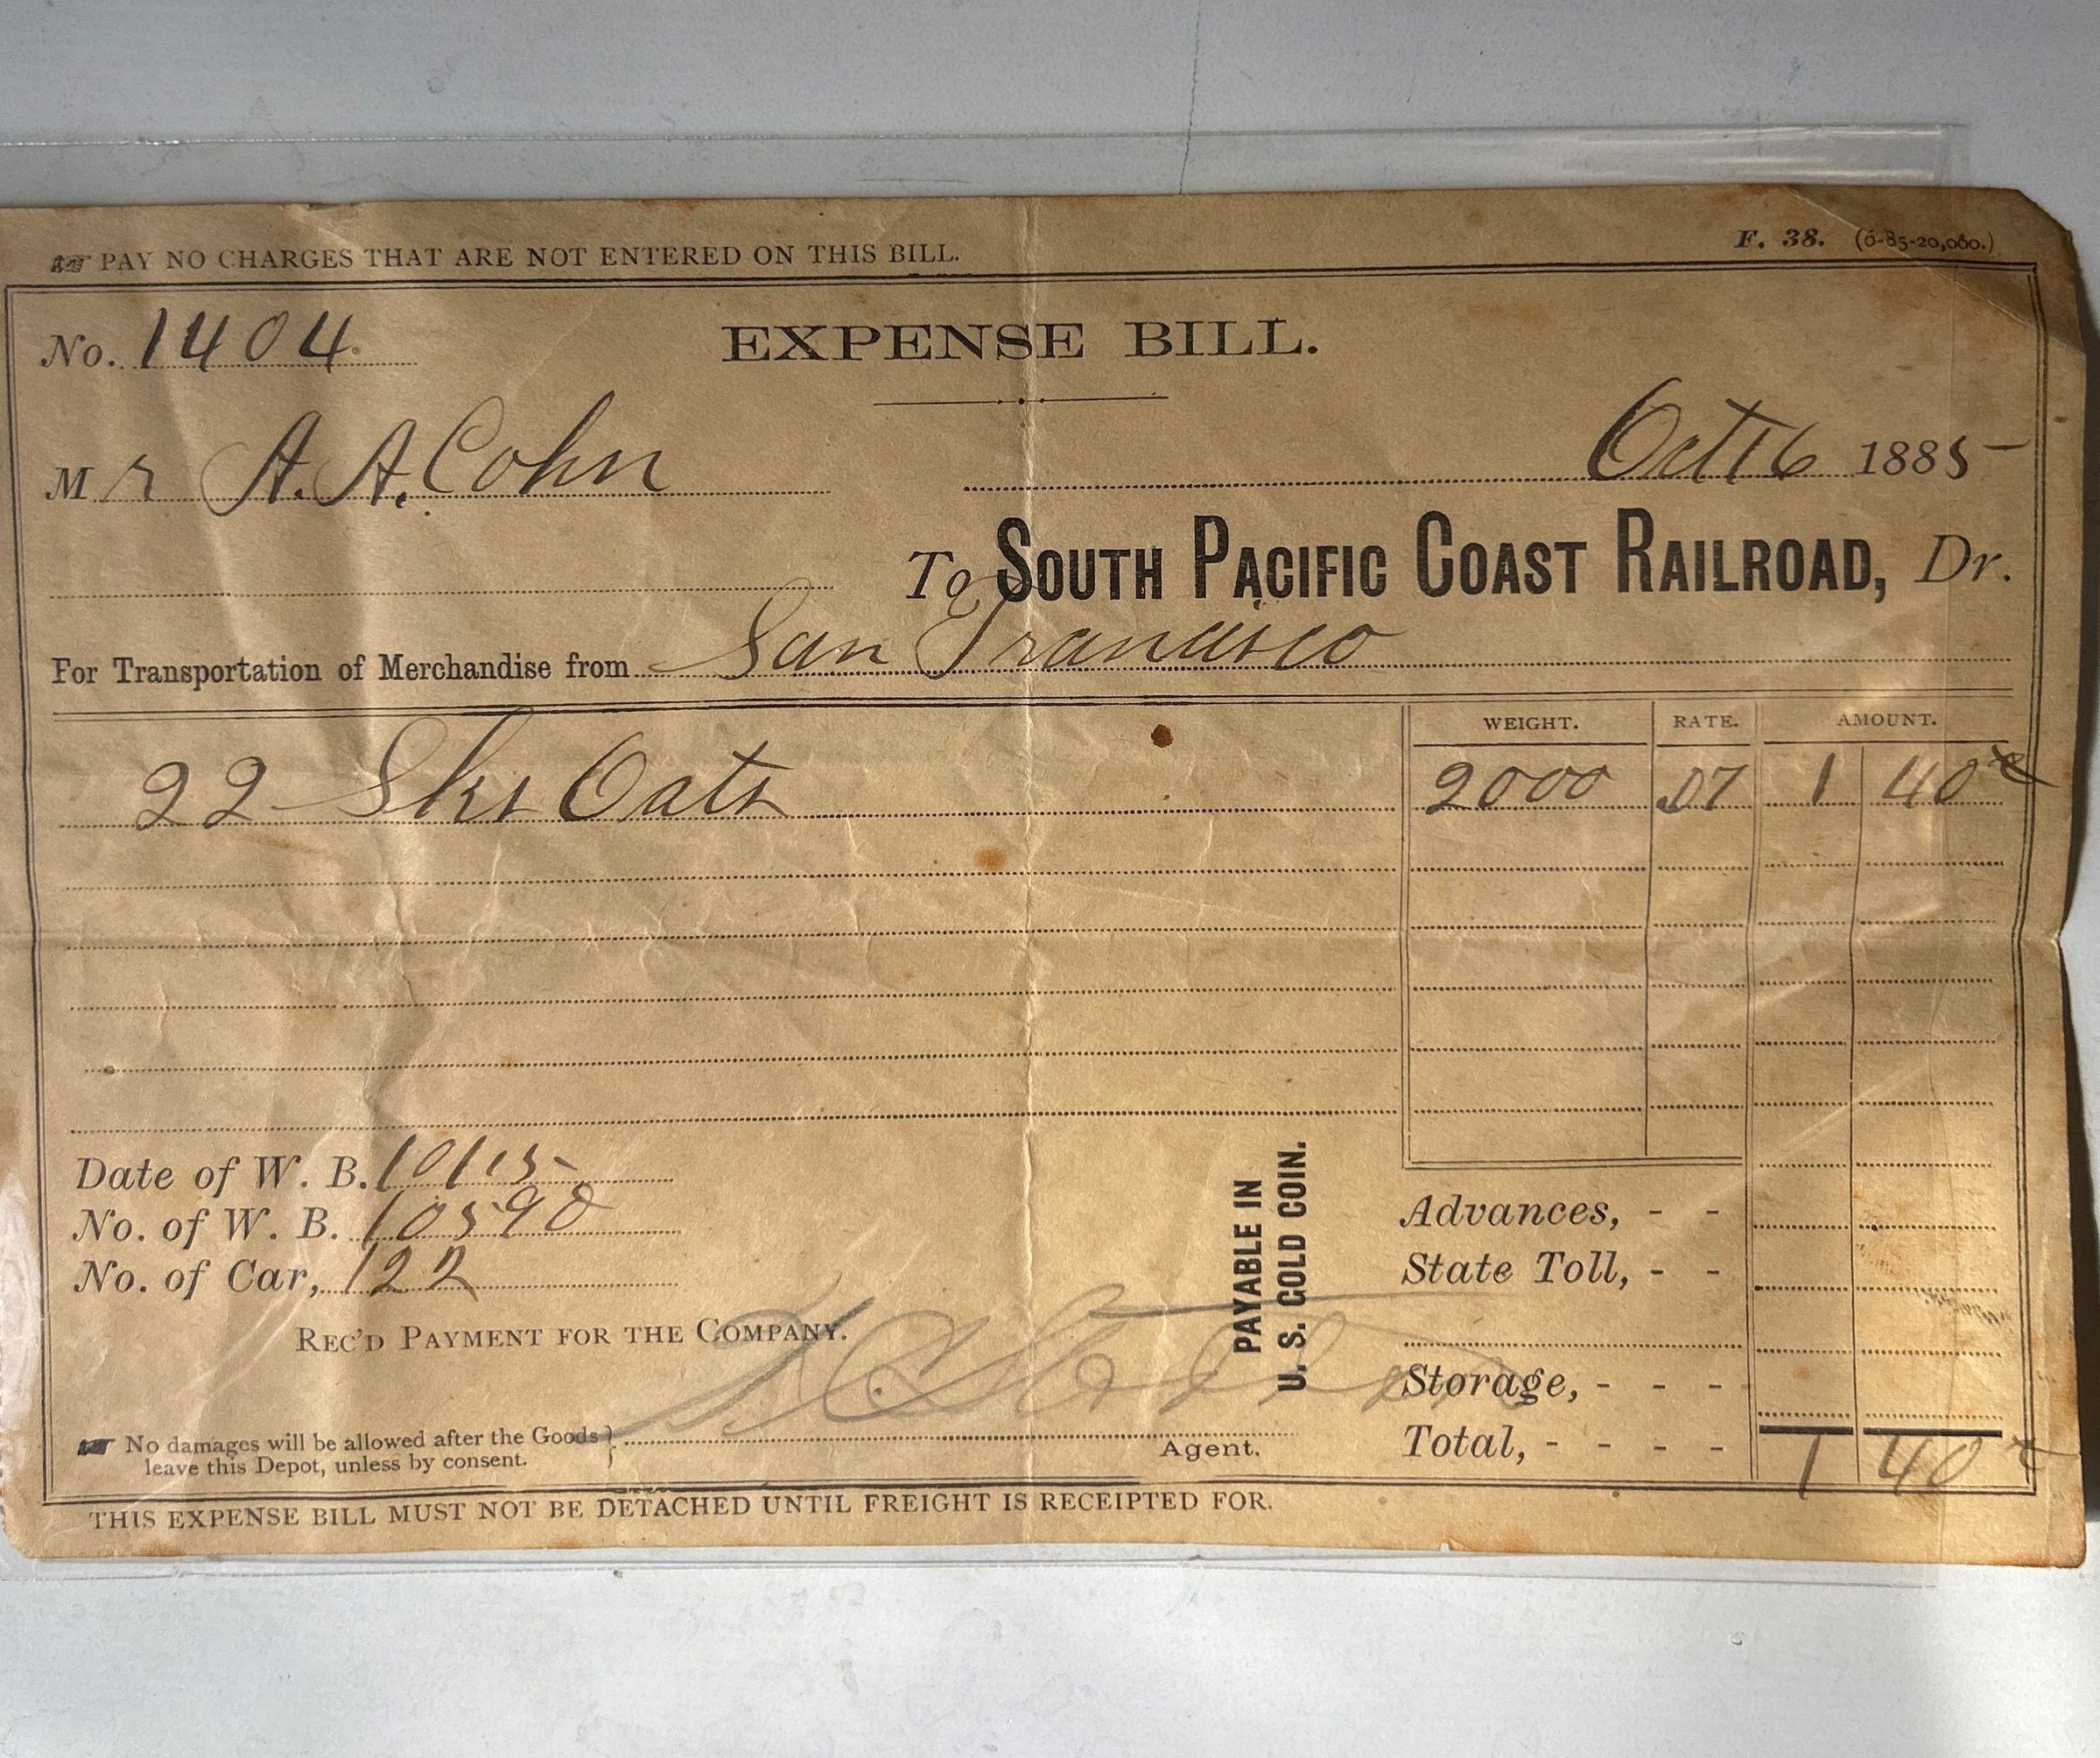 ☞ PAY NO CHARGES THAT ARE NOT ENTERED ON THIS BILL.
F. 38. (6-85-20,000.)
No. 1404
EXPENSE BILL.
Mr A. A. Cohn
Oct 16 1885
To SOUTH PACIFIC COAST RAILROAD, Dr.
For Transportation of Merchandise from San Francisco
WEIGHT. RATE. AMOUNT.
22 Sks Oats 2000 .07 1 40
Date of W. B. 10/15
No. of W. B. 10590
No. of Car, 122
PAYABLE IN
U. S. GOLD COIN.
Advances, - -
State Toll, - -
REC'D PAYMENT FOR THE COMPANY.
Storage, - - -
☞ No damages will be allowed after the Goods }
leave this Depot, unless by consent.
Agent.
Total, - - - - 1 40
THIS EXPENSE BILL MUST NOT BE DETACHED UNTIL FREIGHT IS RECEIPTED FOR.